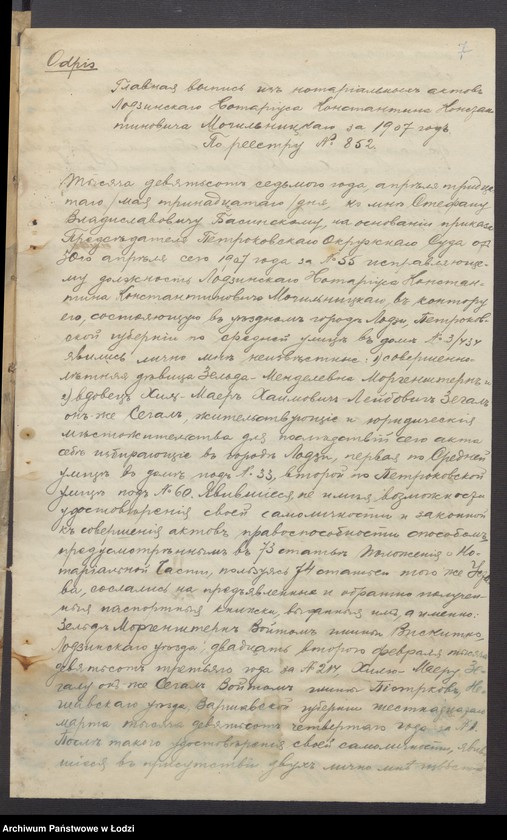 7
Odpis
Главная выпись изъ нотаріальныхъ актовъ
Лодзинскаго Нотаріуса Константина Констан
тиновича Могильницкаго за 1907 годъ.
По реестру № 852.
Тысяча девятьсотъ седьмого года, апрѣля тридца
таго /мая тринадцатаго/ дня, ко мнѣ Стефану
Владиславовичу Басинскому на основаніи приказа
Предсѣдателя Петроковскаго Окружнаго Суда отъ
30го апрѣля сего 1907 года за № 53 исправляюще-
му должность Лодзинскаго Нотаріуса Констан-
тина Константиновича Могильницкаго, въ контору
его, состоящую въ уѣздномъ городѣ Лодзи, Петроков-
ской губерніи по средней улицѣ въ домѣ №
явились лично мнѣ неизвѣстные: 1) совершенно-
лѣтняя дѣвица Зельда Менделевна Моргенштернъ и
2) вдовецъ Хиль-Маеръ Хаимовичъ-Лейбовичъ Зегалъ
онъ же Сегалъ, жительствующіе и юридическія
мѣстожительства для послѣдствій сего акта
себѣ избирающіе въ городѣ Лодзи, первая по Средней
улицѣ въ домѣ подъ № 33, второй по Петроковской
улицѣ подъ № 60. Явившіеся не имѣя возможности
удостовѣренія своей самоличности и законной
къ совершенію актовъ правоспособности способомъ
предусмотрѣннымъ въ 73 статьѣ Положенія о Но-
таріальной Части, пользуясь 74 статьею того же
ва, сослались на предъявленныя и обратно получен-
ныя паспортныя книжки, выданныя имъ, а именно:
Зельдѣ Моргенштернъ Войтомъ гмины
Лодзинскаго уѣзда, двадцать второго февраля тысяча
девятьсотъ третьяго года за № 217 Хилю-Маеру Зе-
галу онъ же Сегалъ Войтомъ гмины
уѣзда, Варшавской губерніи шестнадцатаго
марта тысяча девятьсотъ четвертаго года за №
Послѣ такого удостовѣренія своей самоличности, явив
шіеся въ присутствіи двухъ лично мнѣ извѣст
Archiwum Państwowe w Łodzi